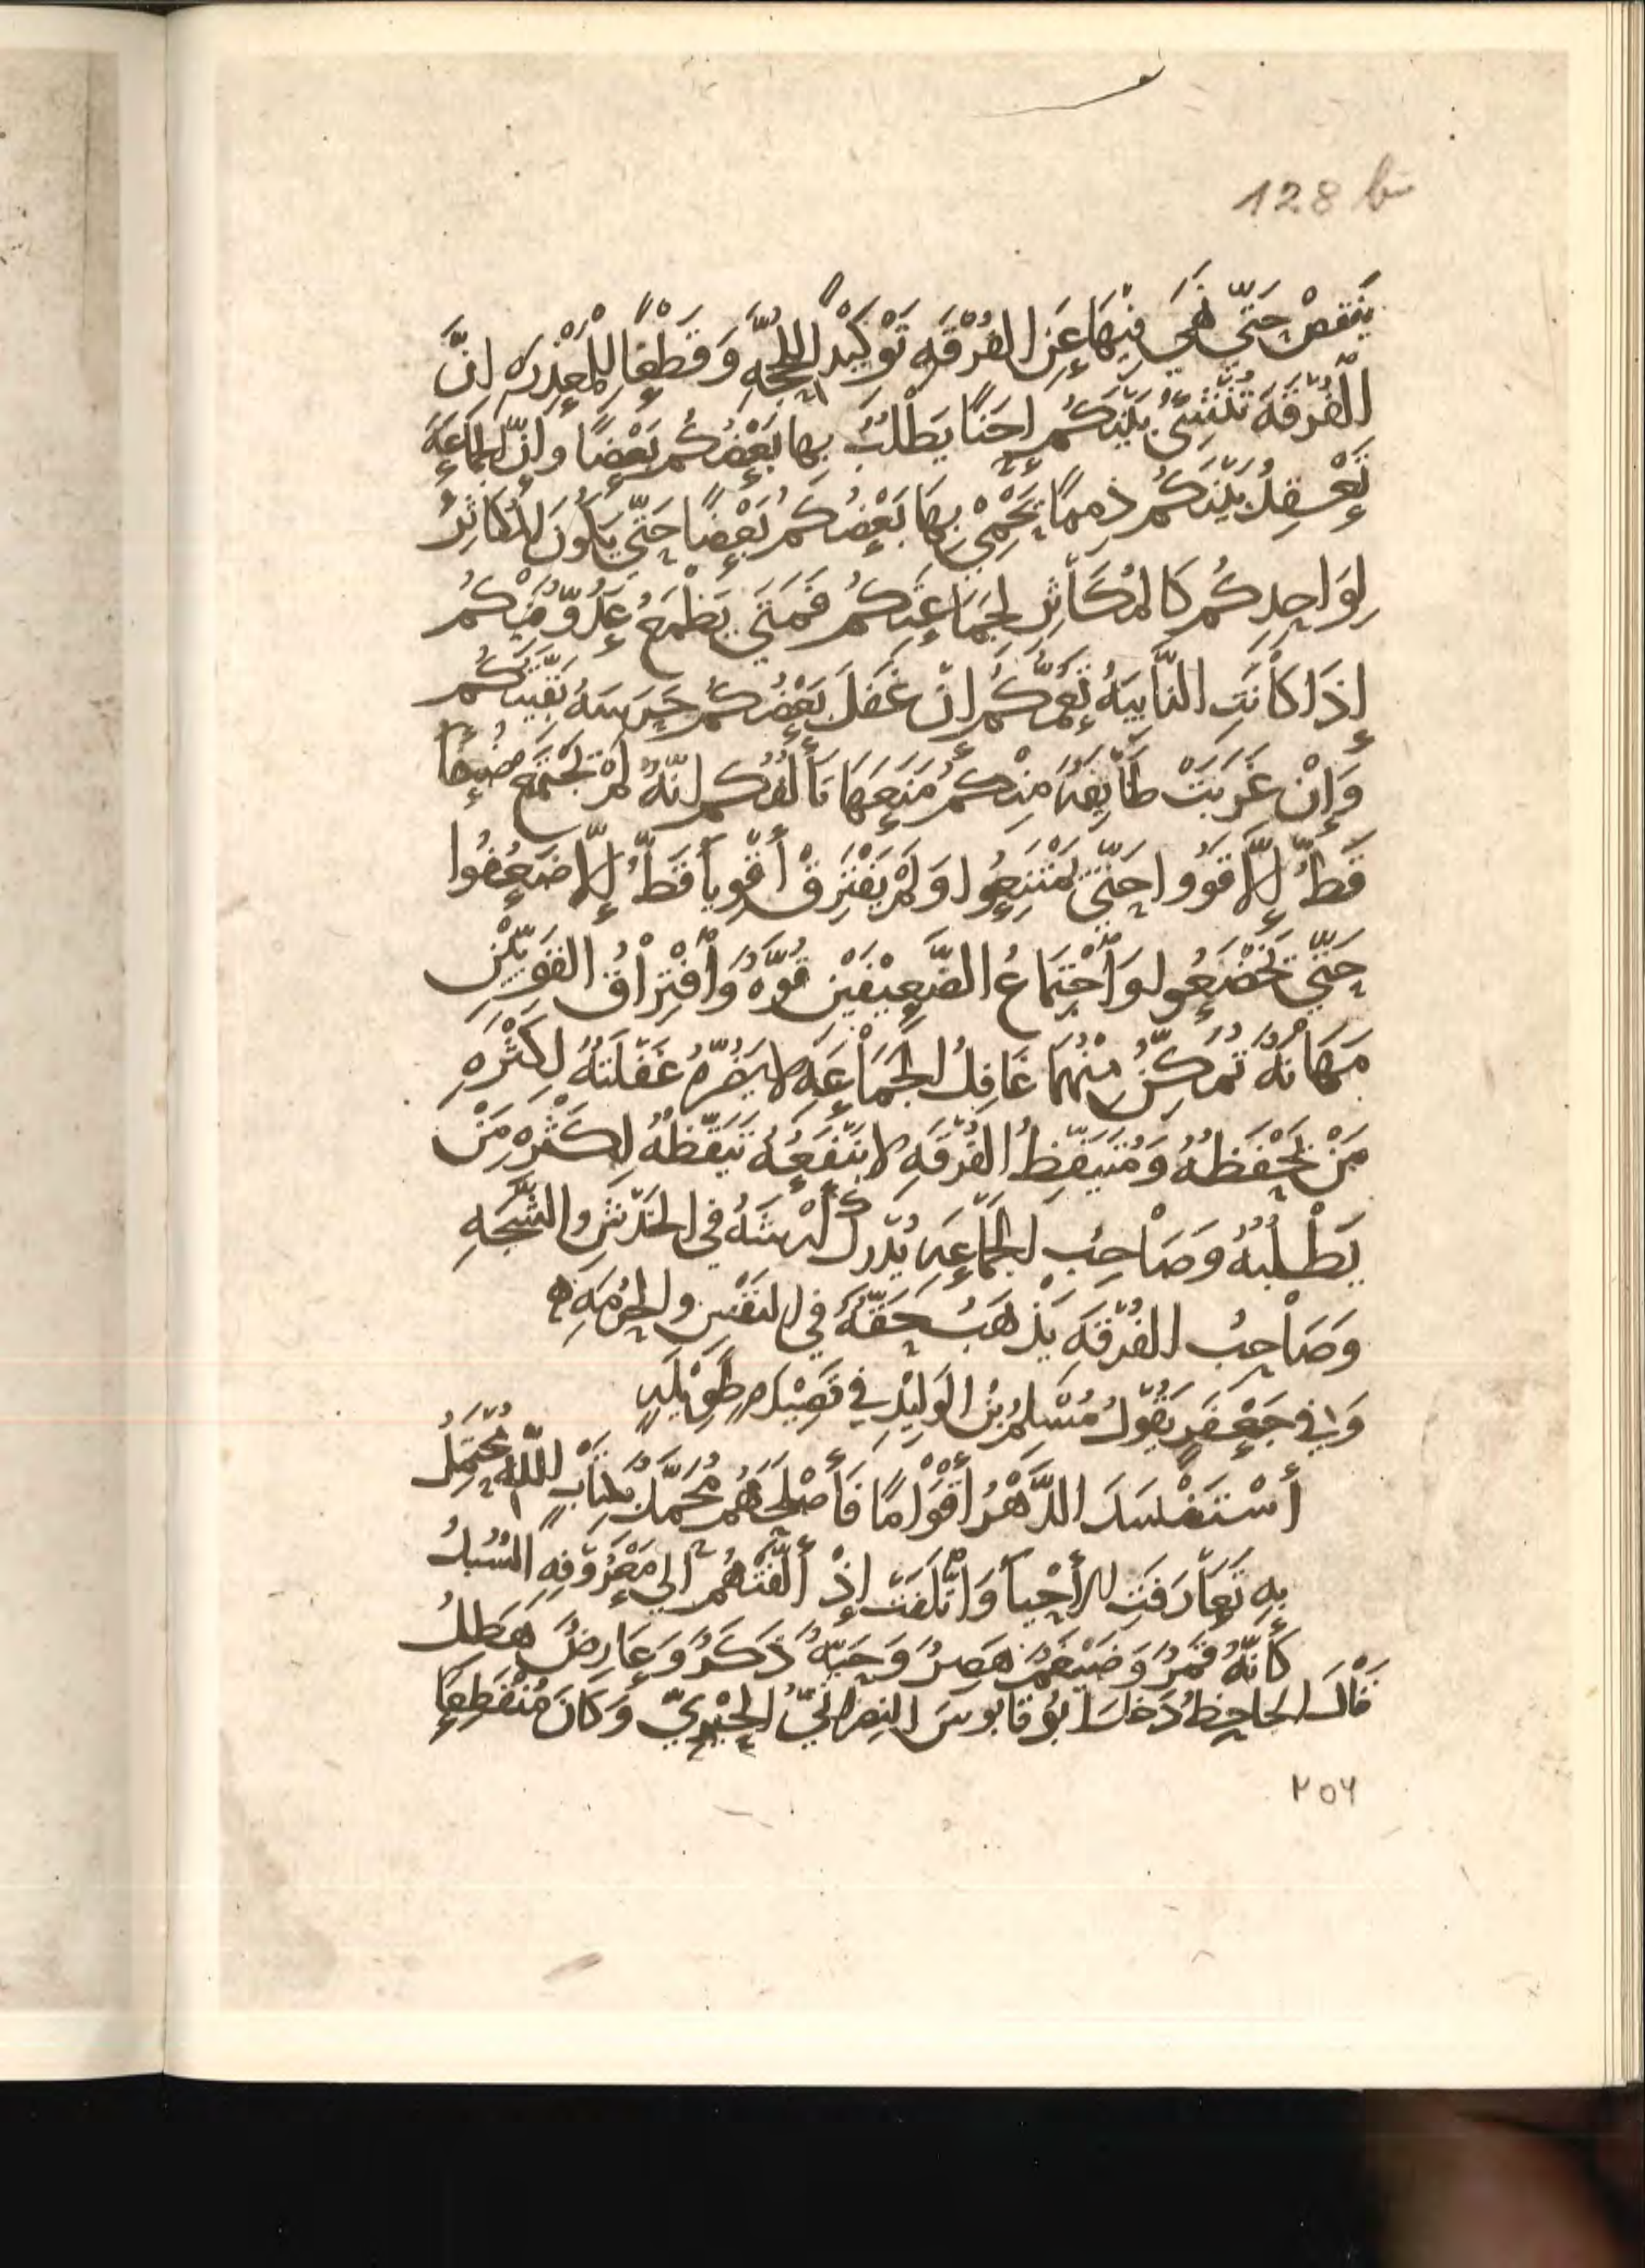 128 b
يَنْقصْ حَتَّى نُهِيَ فِيْهَا عَنِ الفُرْقَهِ تَوْكِيْداً لِلحُجَّهِ وَقَطْعًا لِلْمَعْذِرَهِ اِنَّ
الْفُرْقَهَ تُنْشِئُ بَيْنَكُم اِحَنًا يَطْلُبُ بِهَا بَعْضُكُم بَعْضًا وَاِنَّ الجَمَاعَهَ
تَعْقِدُ بَيْنَكُم ذِمَمًا يَحْمِيْ بِهَا بَعْضُكُمْ بَعْضًا حَتَّى يَكُونَ المُكَاثِرُ
لِوَاحِدِكُم كَالمُكَاثِرِ لِجَمَاعَتِكُم فَمَتَى يَطْمَحُ عَدُوٌّ فِيْكُم
إِذَا كَانَتِ النَّابِيَهُ تَعُمُّكُم اِنْ غَفَلَ بَعْضُكُم حَرَسَهُ بَقِيَّتُكُم
وَإِنْ غَرَبَتْ طَائِفَهٌ مِنْكُم مَنَعَهَا تَأَلُّفُكُم اِنَّهُ لَمْ تَجْتَمِع ضُعَفَا
قَطُّ إِلَّا قَوُوا حَتَّى يَمْتَنِعُوا وَلَمْ يَفْتَرِقْ أَقْوِيَا قَطُّ إِلَّا ضَعُفُوا
حَتَّى يَخْضَعُوا وَاجْتِمَاعُ الضَّعِيْفَيْنِ قُوَّهٌ وَافْتِرَاقُ القَوِيَّيْنِ
مَهَانَهٌ تُمَكِّنُ مِنْهُمَا غَافِلُ الجَمَاعَهِ لَا يَضُرُّهُ غَفْلَتُهُ لِكَثْرَهِ
مَنْ يَحْفَظُهُ وَمُتَيَقِّظُ الفُرْقَهِ لَا يَنْفَعُهُ تَيَقُّظُهُ لِكَثْرَهِ مَنْ
يَطْلُبُهُ وَصَاحِبُ الجَمَاعَهِ يُدْرِكُ أَرْشَهُ فِي الخَدْشِ وَالشَّجَّهِ
وَصَاحِبُ الفُرْقَهِ يَذْهَبُ حَقُّهُ فِي النَفْسِ وَالحُرْمَهِ
وَفِي جَعْفَرٍ يَقُولُ مُسْلِمُ بْنُ الوَلِيْدِ فِي قَصِيْدَهٍ طَوِيْلَهٍ
أَسْتَفْسَدَ الدَّهْرُ أَقْوَامًا فَأَصْلَحَهُمْ مُحَمَّلٌ لِلَّهِ مُحْتَمِلُ
بِهِ تَعَارَفَتِ الأَحْيَا وَائْتَلَفَتْ إِذْ أَلَّفَتْهُم الى مَعْرُوفِهِ السُبُلُ
كَأَنَّهُ قَمَرٌ وَضَيْغَمٌ هَصِرٌ وَحَيَّهٌ ذَكَرٌ وَعَارِضٌ هَطِلُ
قَالَ الجَاحِظُ دَخَلَ ابُو قَابُوسَ النِصْرَانِيُّ الحِيْرِيُّ وَكَانَ مُنْقَطِعًا
٢٥٦